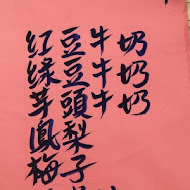 紅豆牛奶
綠豆牛奶
芋頭牛奶
鳳梨
梅子